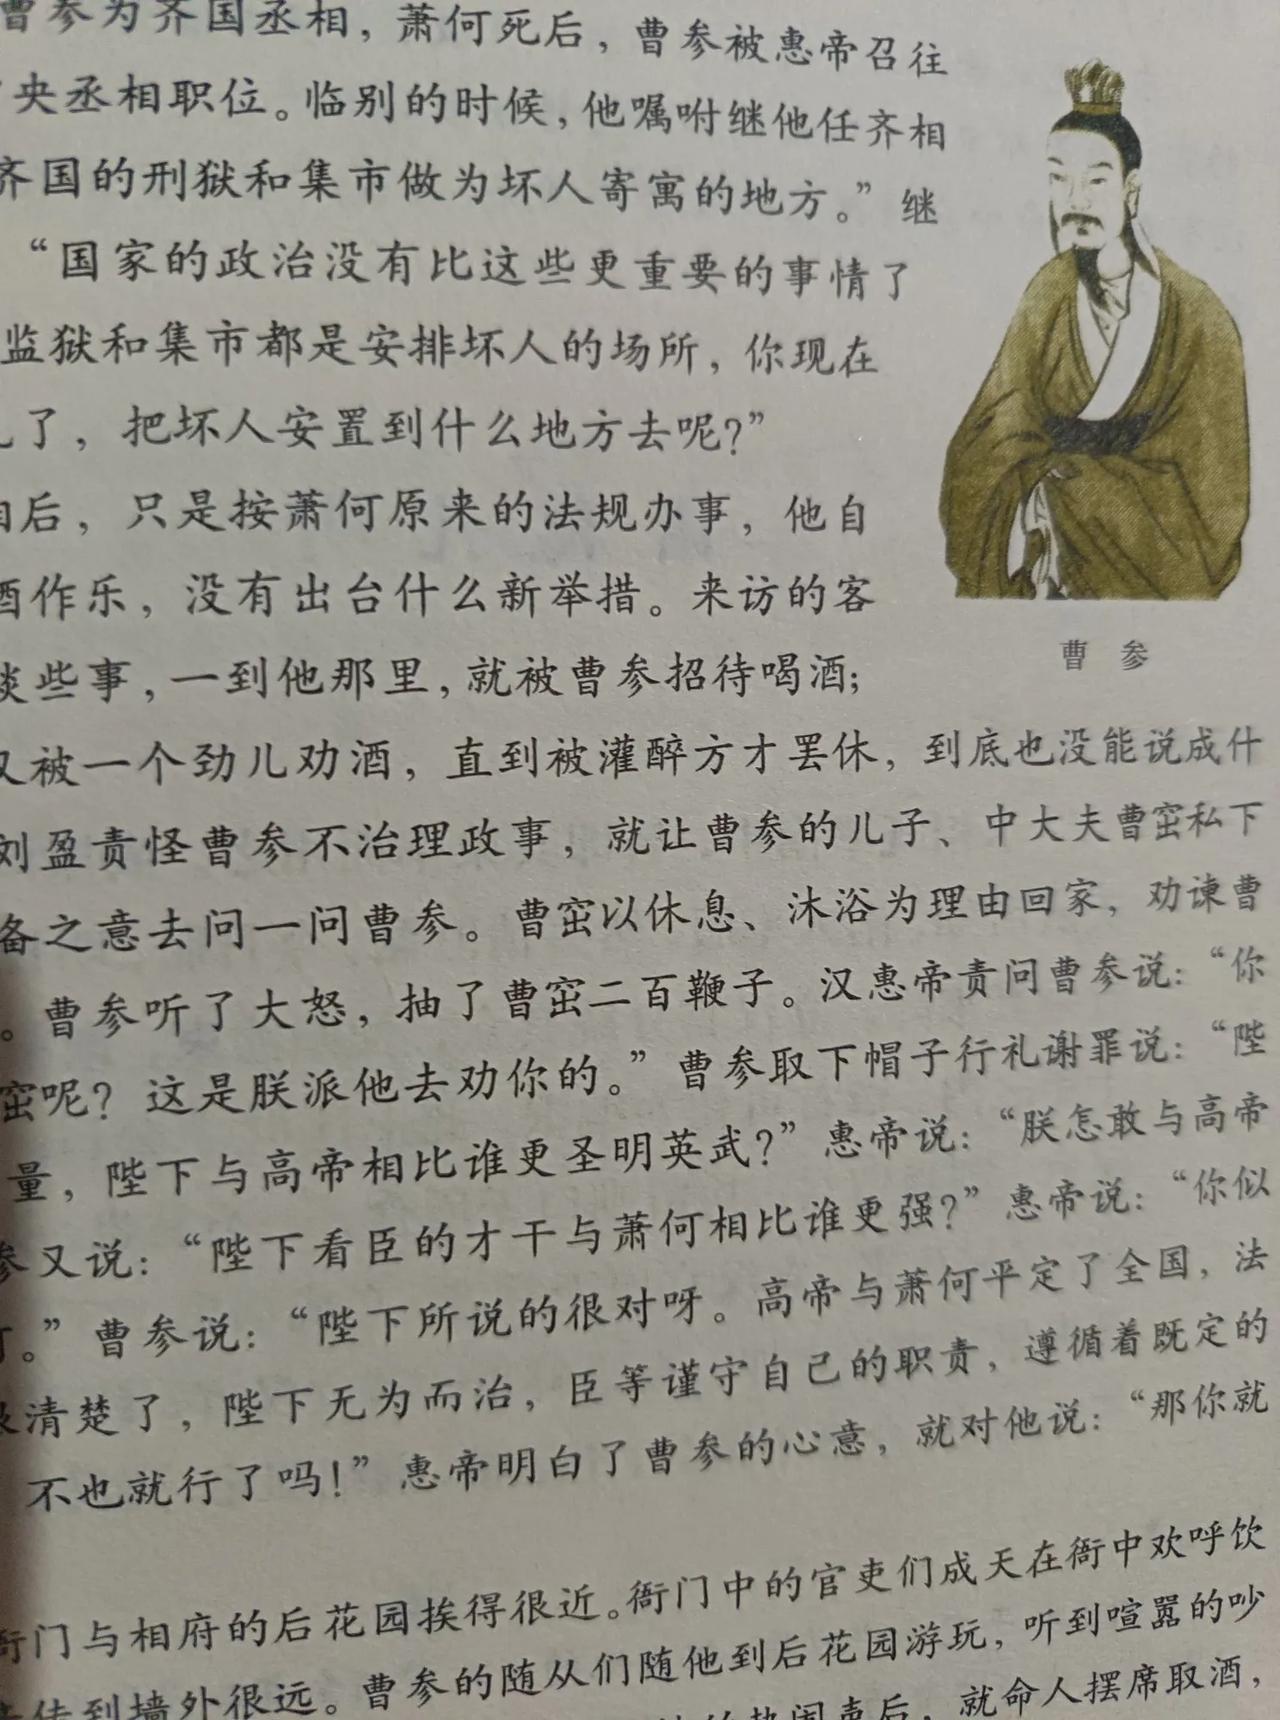 曹参为齐国丞相，萧何死后，曹参被惠帝召往
央丞相职位。临别的时候，他嘱咐继他任齐相
齐国的刑狱和集市做为坏人寄寓的地方。”继
“国家的政治没有比这些更重要的事情了
监狱和集市都是安排坏人的场所，你现在
了，把坏人安置到什么地方去呢？”
相后，只是按萧何原来的法规办事，他自
酒作乐，没有出台什么新举措。来访的客
谈些事，一到他那里，就被曹参招待喝酒；
又被一个劲儿劝酒，直到被灌醉方才罢休，到底也没能说成什
刘盈责怪曹参不治理政事，就让曹参的儿子、中大夫曹窋私下
备之意去问一问曹参。曹窋以休息、沐浴为理由回家，劝谏曹
。曹参听了大怒，抽了曹窋二百鞭子。汉惠帝责问曹参说：“你
窋呢？这是朕派他去劝你的。”曹参取下帽子行礼谢罪说：“陛
量，陛下与高帝相比谁更圣明英武？”惠帝说：“朕怎敢与高帝
参又说：“陛下看臣的才干与萧何相比谁更强？”惠帝说：“你似
。”曹参说：“陛下所说的很对呀。高帝与萧何平定了全国，法
清楚了，陛下无为而治，臣等谨守自己的职责，遵循着既定的
不也就行了吗！”惠帝明白了曹参的心意，就对他说：“那你就
门与相府的后花园挨得很近。衙门中的官吏们成天在衙中欢呼饮
传到墙外很远。曹参的随从们随他到后花园游玩，听到喧嚣的吵
热闹声后，就命人摆席取酒，
曹参